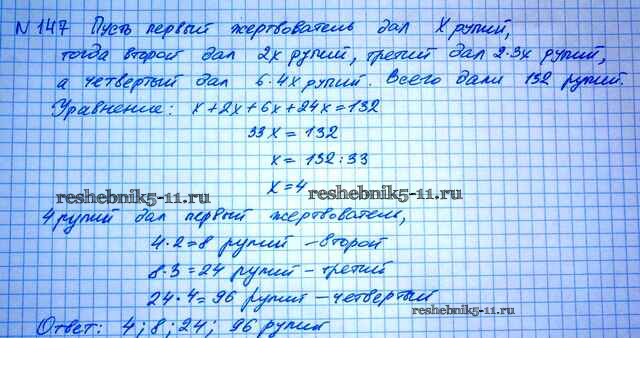 №147 Пусть первый жертвователь дал X рупий,
тогда второй дал 2x рупий, третий дал 2·3x рупий,
а четвертый дал 6·4x рупий. Всего дали 132 рупий.
Уравнение: x+2x+6x+24x=132
33x=132
x=132:33
x=4
reshebnik5-11.ru reshebnik5-11.ru
4 рупий дал первый жертвователь,
4·2=8 рупий – второй
8·3=24 рупий – третий
24·4=96 рупий – четвертый
reshebnik5-11.ru
Ответ: 4; 8; 24; 96 рупий